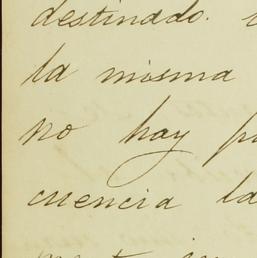 destinado.
la misma
no hay
cuencia la